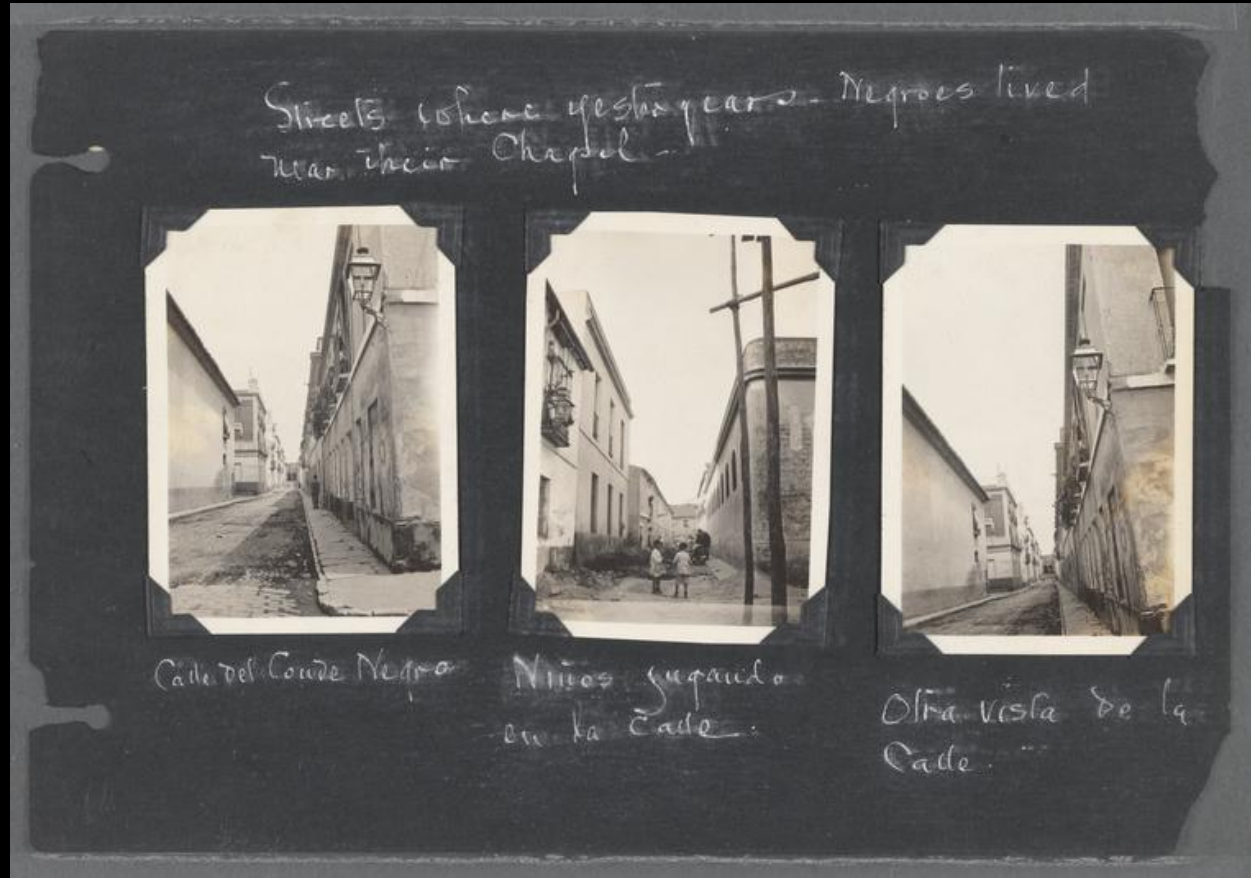 Streets where yesteryears - Negroes lived
near their Chapel -
Calle Del Conde Negro
Niños jugando
en la Calle.
Otra vista de la
Calle.